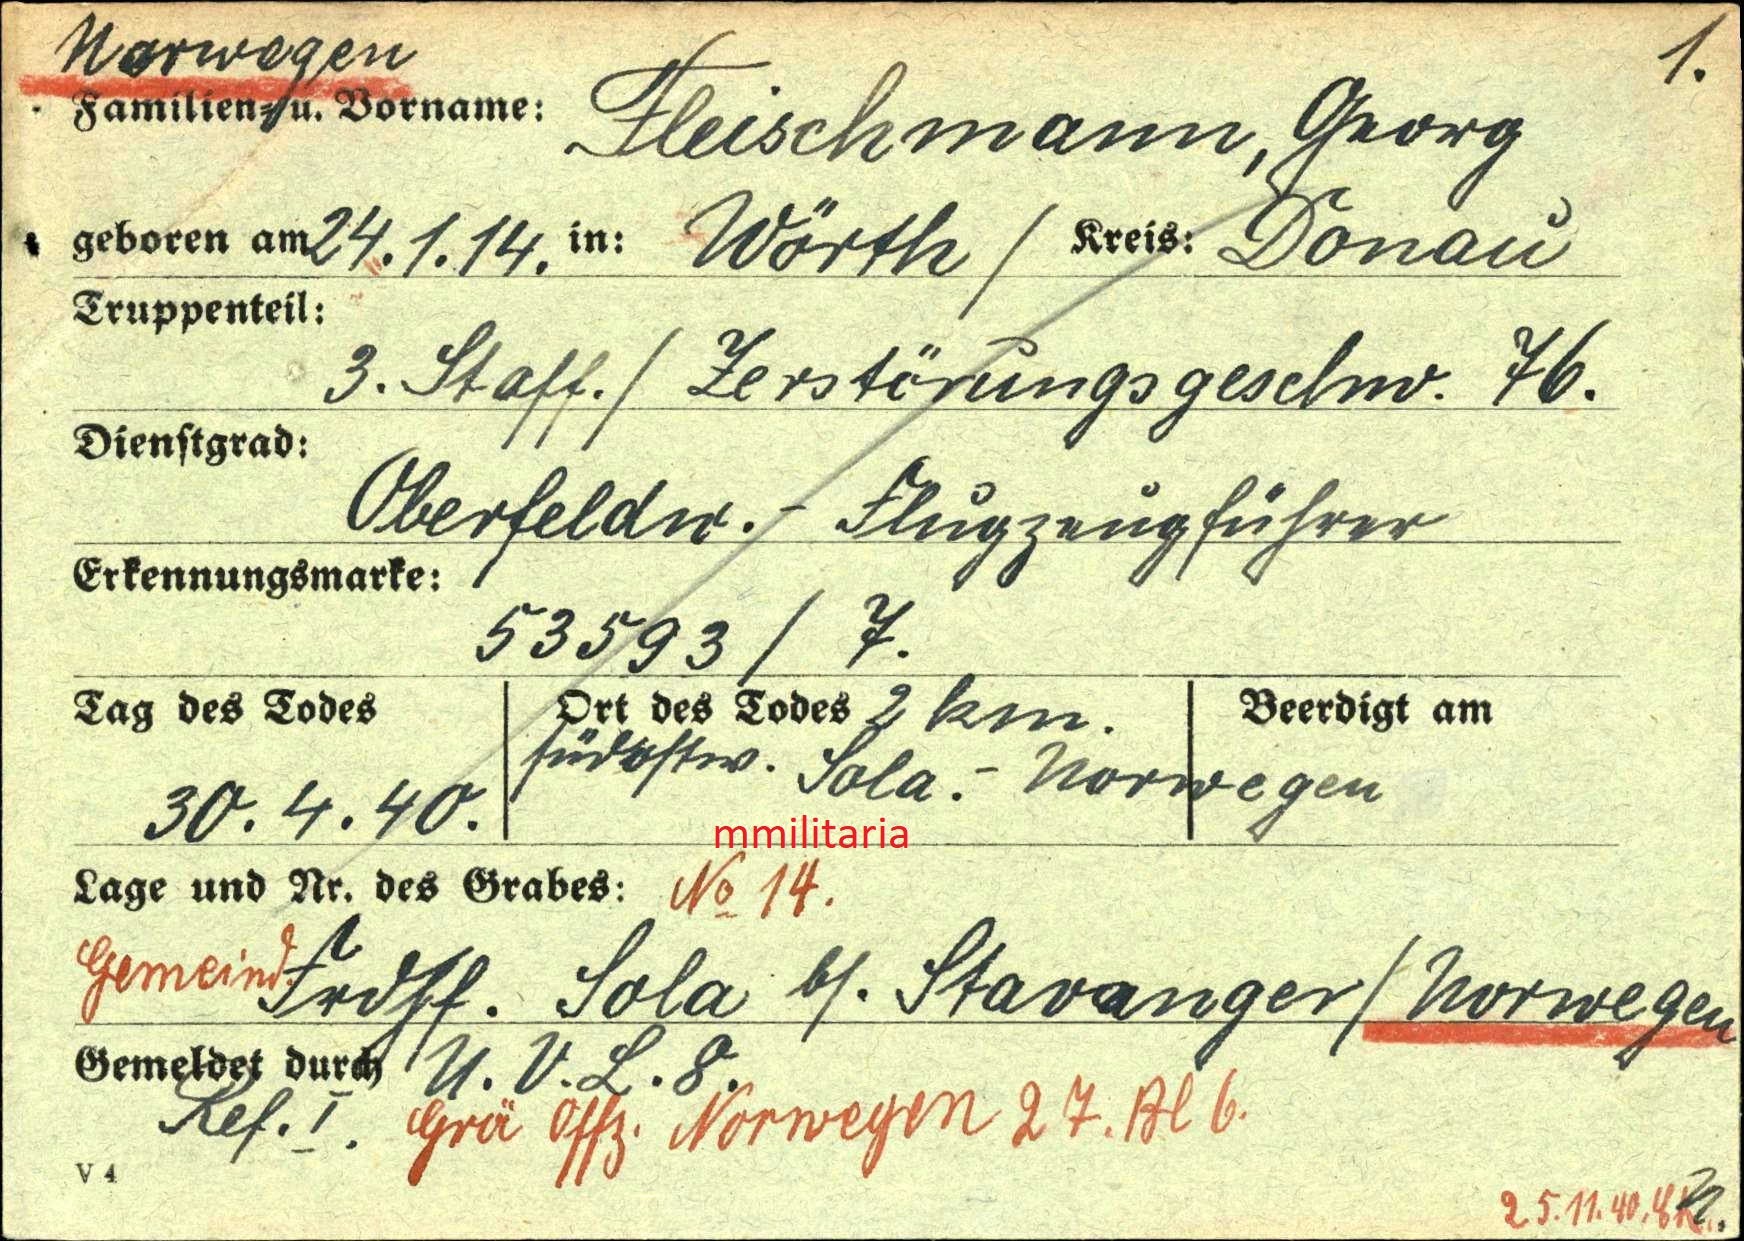 Norwegen
1.
Familien- u. Vorname: Fleischmann, Georg
geboren am 24.1.14. in: Wörth / Kreis: Donau
Truppenteil:
3. Staff. / Zerstörungsgeschw. 76.
Dienstgrad:
Oberfeldw. - Flugzeugführer
Erkennungsmarke:
53593 / 7.
Tag des Todes Ort des Todes 2 km. Beerdigt am
südostw. Sola. - Norwegen
30. 4. 40.
mmilitaria
Lage und Nr. des Grabes: No 14.
Gemeind. Frdhf. Sola b/. Stavanger / Norwegen
Gemeldet durch U. V. L. 8.
Ref. I. Grä Offz. Norwegen 27. Bl 6.
V 4
25.11.40.